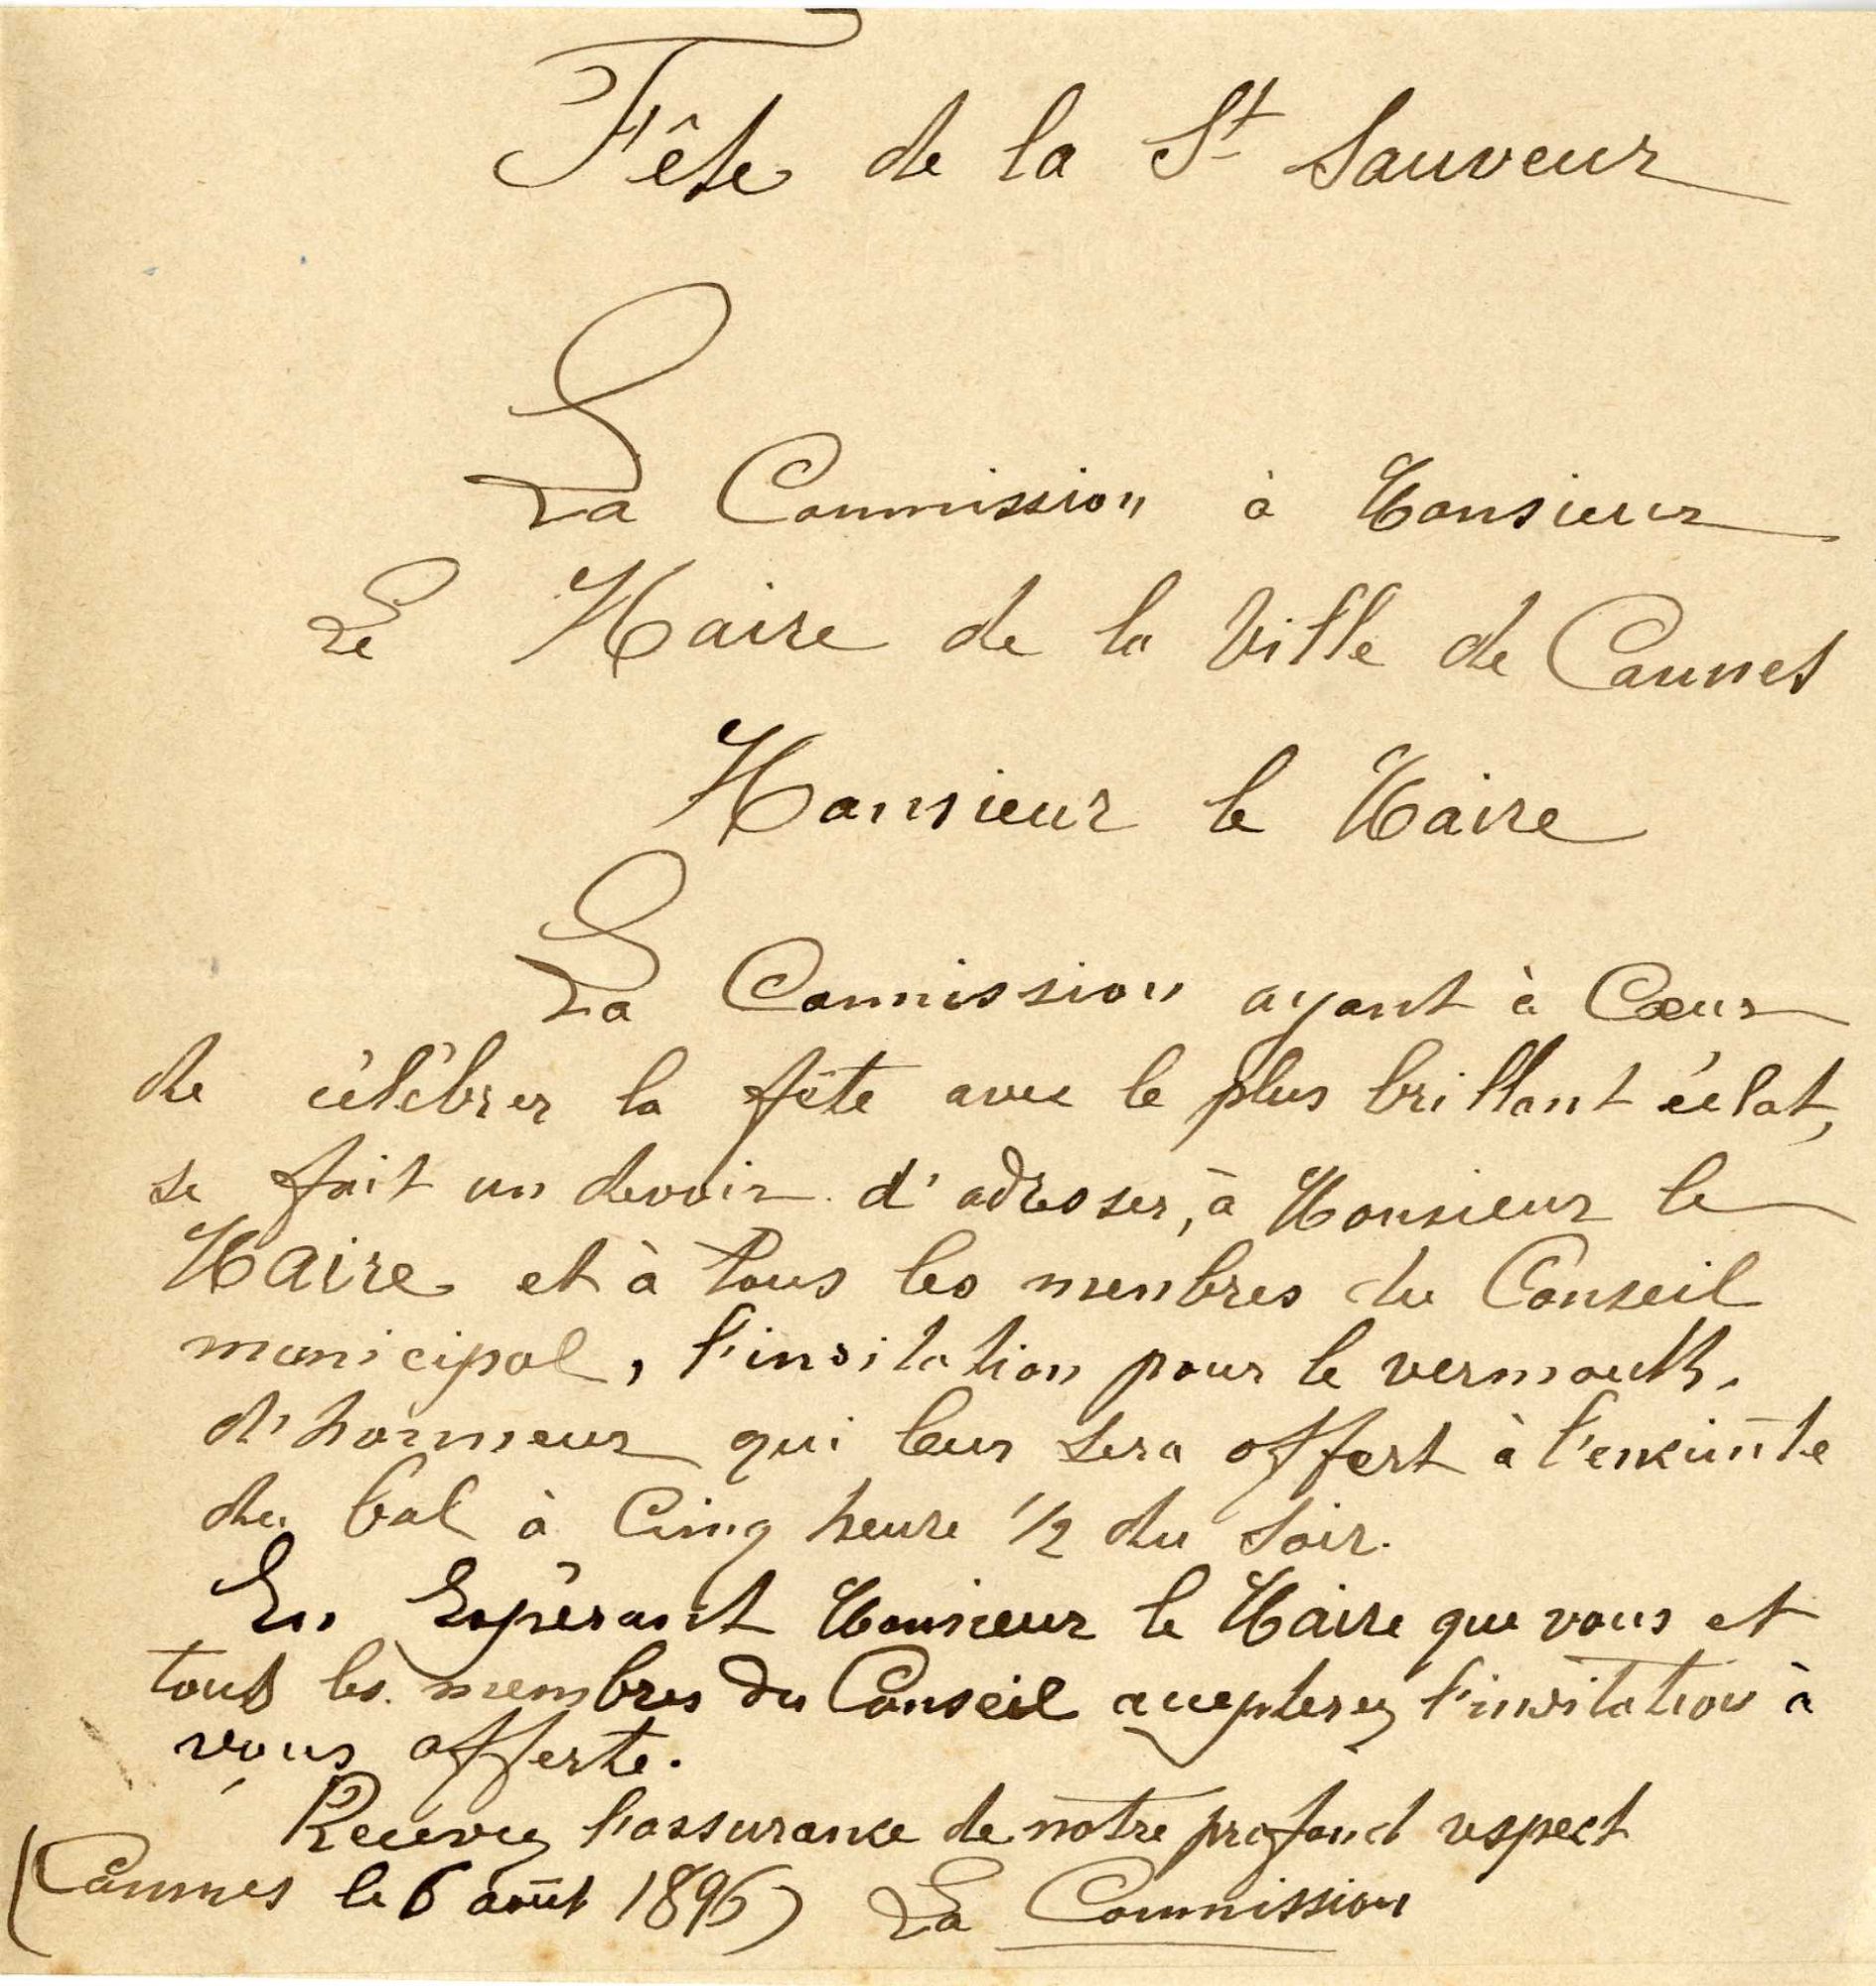 Fête de la St Sauveur
La Commission à Monsieur
Le Maire de la Ville de Cannes
Monsieur le Maire
La Commission ayant à Cœur
de célèbrer la fête avec le plus brillant éclat,
se fait un devoir d'adresser, à Monsieur le
Maire et à tous les menbres du Conseil
municipal, l'invitation pour le vermouth
d'honneur qui leur sera offert à l'enceinte
du bal à Cinq heure 1/2 du Soir.
En Espérant Monsieur le Maire que vous et
tous les membres du Conseil accepterez l'invitation à
vous offerte.
Recevez l'assurance de notre profond respect
(Cannes le 6 août 1896) La Commission